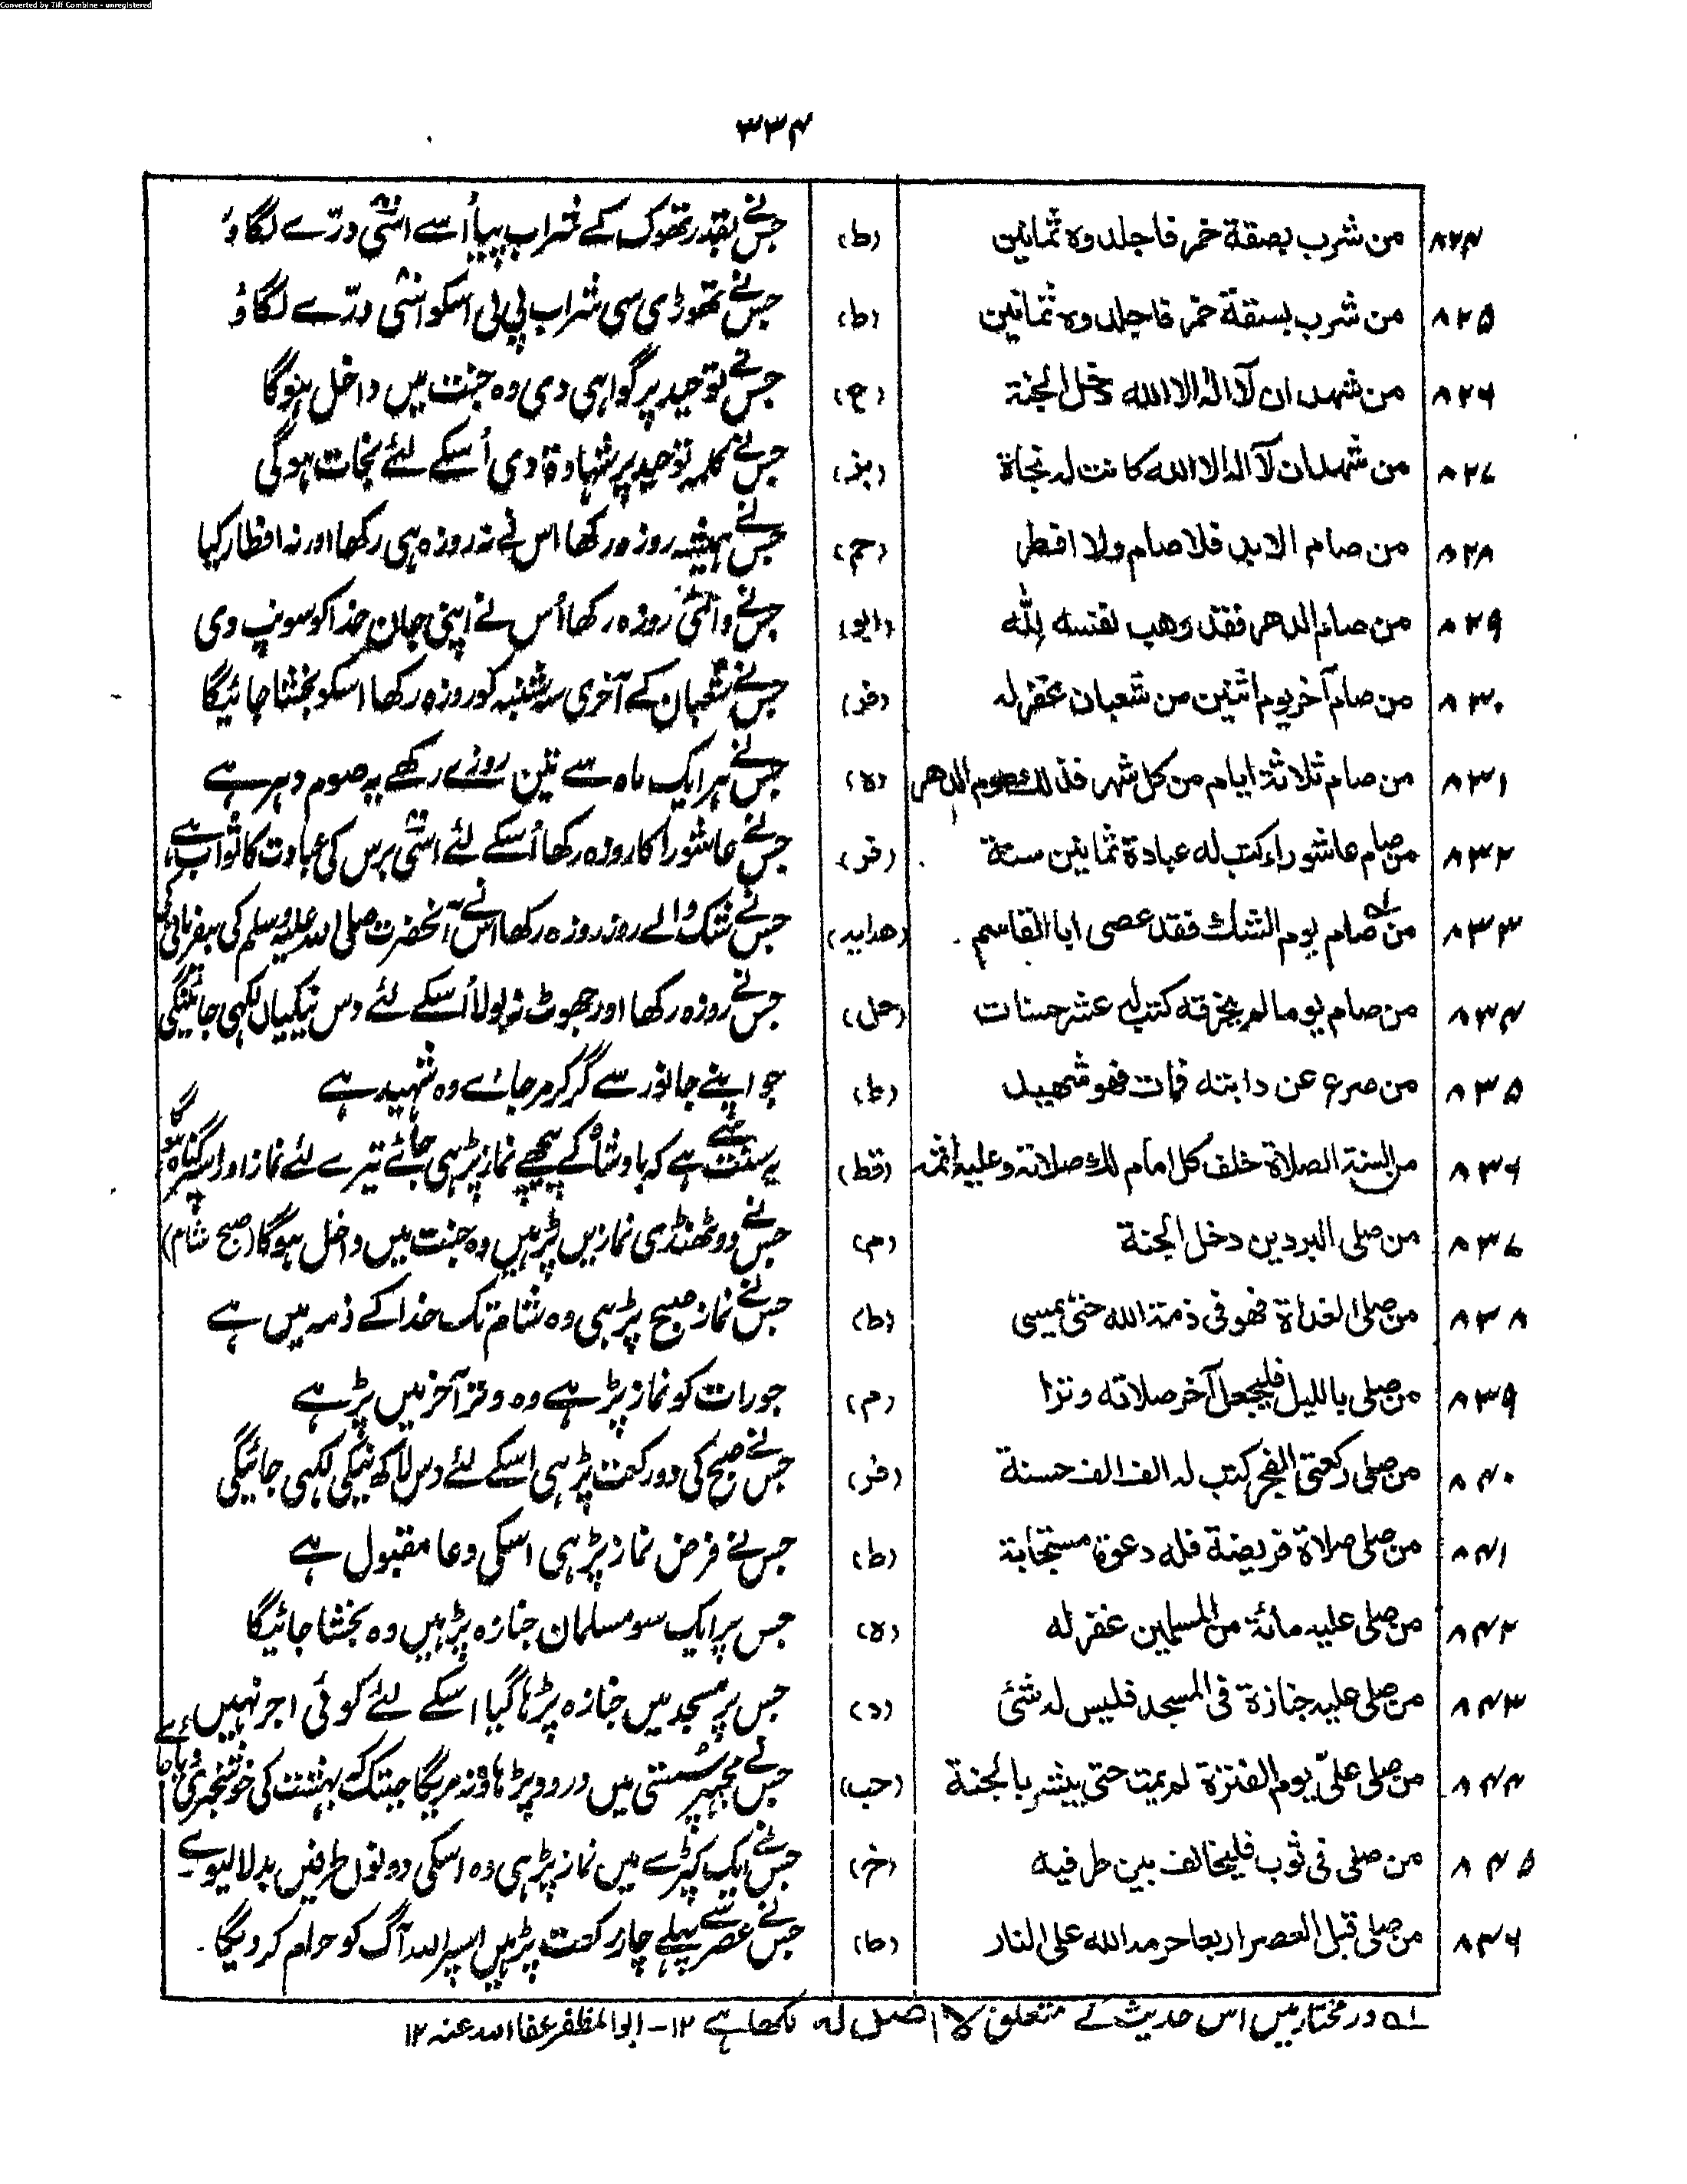 Converted by Tiff Combine - unregistered
۳۳۴
۸۲۴ من شرب بصقة خمر فاجلدوہ ثمانین (ط) جس نے بقدر تھوک کے شراب پیا اُسے اسّی درّے لگاؤ
۸۲۵ من شرب بسقة خمر فاجلدوہ ثمانین (ط) جس نے تھوڑی سی شراب پی لی اسکو اسّی درّے لگاؤ
۸۲۶ من شهد ان لآ اله الا الله دخل الجنة (ع) جس نے توحید پر گواہی دی وہ جنت میں داخل ہوگا
۸۲۷ من شهد ان لآ اله الا الله كانت له نجاة (بز) جس نے کلمہ توحید پر شہادۃ دی اُسکے لئے نجات ہوگی
۸۲۸ من صام الابد فلا صام ولا افطر (حم) جس نے ہمیشہ روزہ رکھا اس نے نہ روزہ ہی رکھا اور نہ افطار کیا
۸۲۹ من صام الدهر فقد وهب نفسه لله (ابو) جس نے دائمی روزہ رکھا اُس نے اپنی جان خدا کو سونپ دی
۸۳۰ من صام آخر يوم اثنين من شعبان غفر له (فر) جس نے شعبان کے آخری سہ شنبہ کو روزہ رکھا اسکو بخشا جائیگا
۸۳۱ من صام ثلاثة ايام من كل شهر فذلك صوم الدهر (ہ) جس نے ہر ایک ماہ سے تین روزے رکھے یہ صوم دہر ہے
۸۳۲ من صام عاشوراء كتب له عبادة ثمانين سنة (فر) جس نے عاشورا کا روزہ رکھا اُسکے لئے اسّی برس کی عبادت کا ثواب ہے
۸۳۳ من صام يوم الشك فقد عصى ابا القاسم ۔ (هدایہ) جس نے شک والے روز روزہ رکھا اس نے آنحضرت صلی اللہ علیہ وسلم کی بیفرمانی کی
۸۳۴ من صام يوما لم يخرقه كتب له عشر حسنات (حل) جس نے روزہ رکھا اور جھوٹ نہ بولا اُسکے لئے دس نیکیاں لکہی جائینگی
۸۳۵ من صرع عن دابته فمات فهو شهيد (ط) جو اپنے جانور سے گر کر مر جائے وہ شہید ہے
۸۳۶ من السنة الصلاة خلف كل امام لك صلاته وعليه اثمه (قط) یہ سنت ہے کہ بادشاہ کے پیچھے نماز پڑہی جائے تیرے لئے نماز اور اسپر گناہ ہوگا
۸۳۷ من صلى البردين دخل الجنة (م) جس نے دو ٹھنڈی نمازیں پڑہیں وہ جنت میں داخل ہوگا (صبح شام)
۸۳۸ من صلى الغداة فهو في ذمة الله حتى يمسى (ط) جس نے نماز صبح پڑہی وہ شام تک خدا کے ذمہ میں ہے
۸۳۹ من صلى بالليل فليجعل آخر صلاته وترا (م) جو رات کو نماز پڑہے وہ وتر آخر میں پڑہے
۸۴۰ من صلى ركعتي الفجر كتب له الف الف حسنة (فر) جس نے صبح کی دو رکعت پڑہی اسکے لئے دس لاکھ نیکی لکہی جائیگی
۸۴۱ من صلى صلاة فريضة فله دعوة مستجابة (ط) جس نے فرض نماز پڑہی اسکی دعا مقبول ہے
۸۴۲ من صلى عليه مائة من المسلمين غفر له (ہ) جس پر ایک سو مسلمان جنازہ پڑہیں وہ بخشا جائیگا
۸۴۳ من صلى عليه جنازة في المسجد فليس له شئ (د) جس پر مسجد میں جنازہ پڑہا گیا اسکے لئے کوئی اجر نہیں
۸۴۴ من صلى عليّ يوم الفترة لم يمت حتى يبشر بالجنة (حب) جس نے مجہپر سستی میں درود پڑہا وہ نہ مریگا جبتک کہ بہشت کی خوشخبری نہ پا جائے
۸۴۵ من صلى في ثوب فليخالف بين طرفيه (خ) جس نے ایک کپڑے میں نماز پڑہی وہ اسکی دونوں طرفیں بدلا لیوے ۔
۸۴۶ من صلى قبل العصر اربعا حرمه الله على النار (طا) جس نے عصر سے پہلے چار رکعت پڑہیں اسپر اللہ آگ کو حرام کر دیگا ۔
لہ در مختار میں اس حدیث کے متعلق لا اصل له لکھا ہے ۱۲ – ابو المظفر عفا اللہ عنہ ۱۲